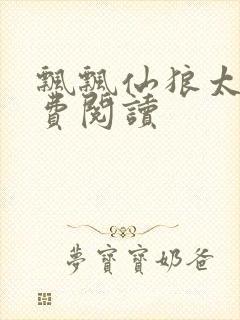 飄飄仙狼太
費閱讀
夢寶寶奶爸